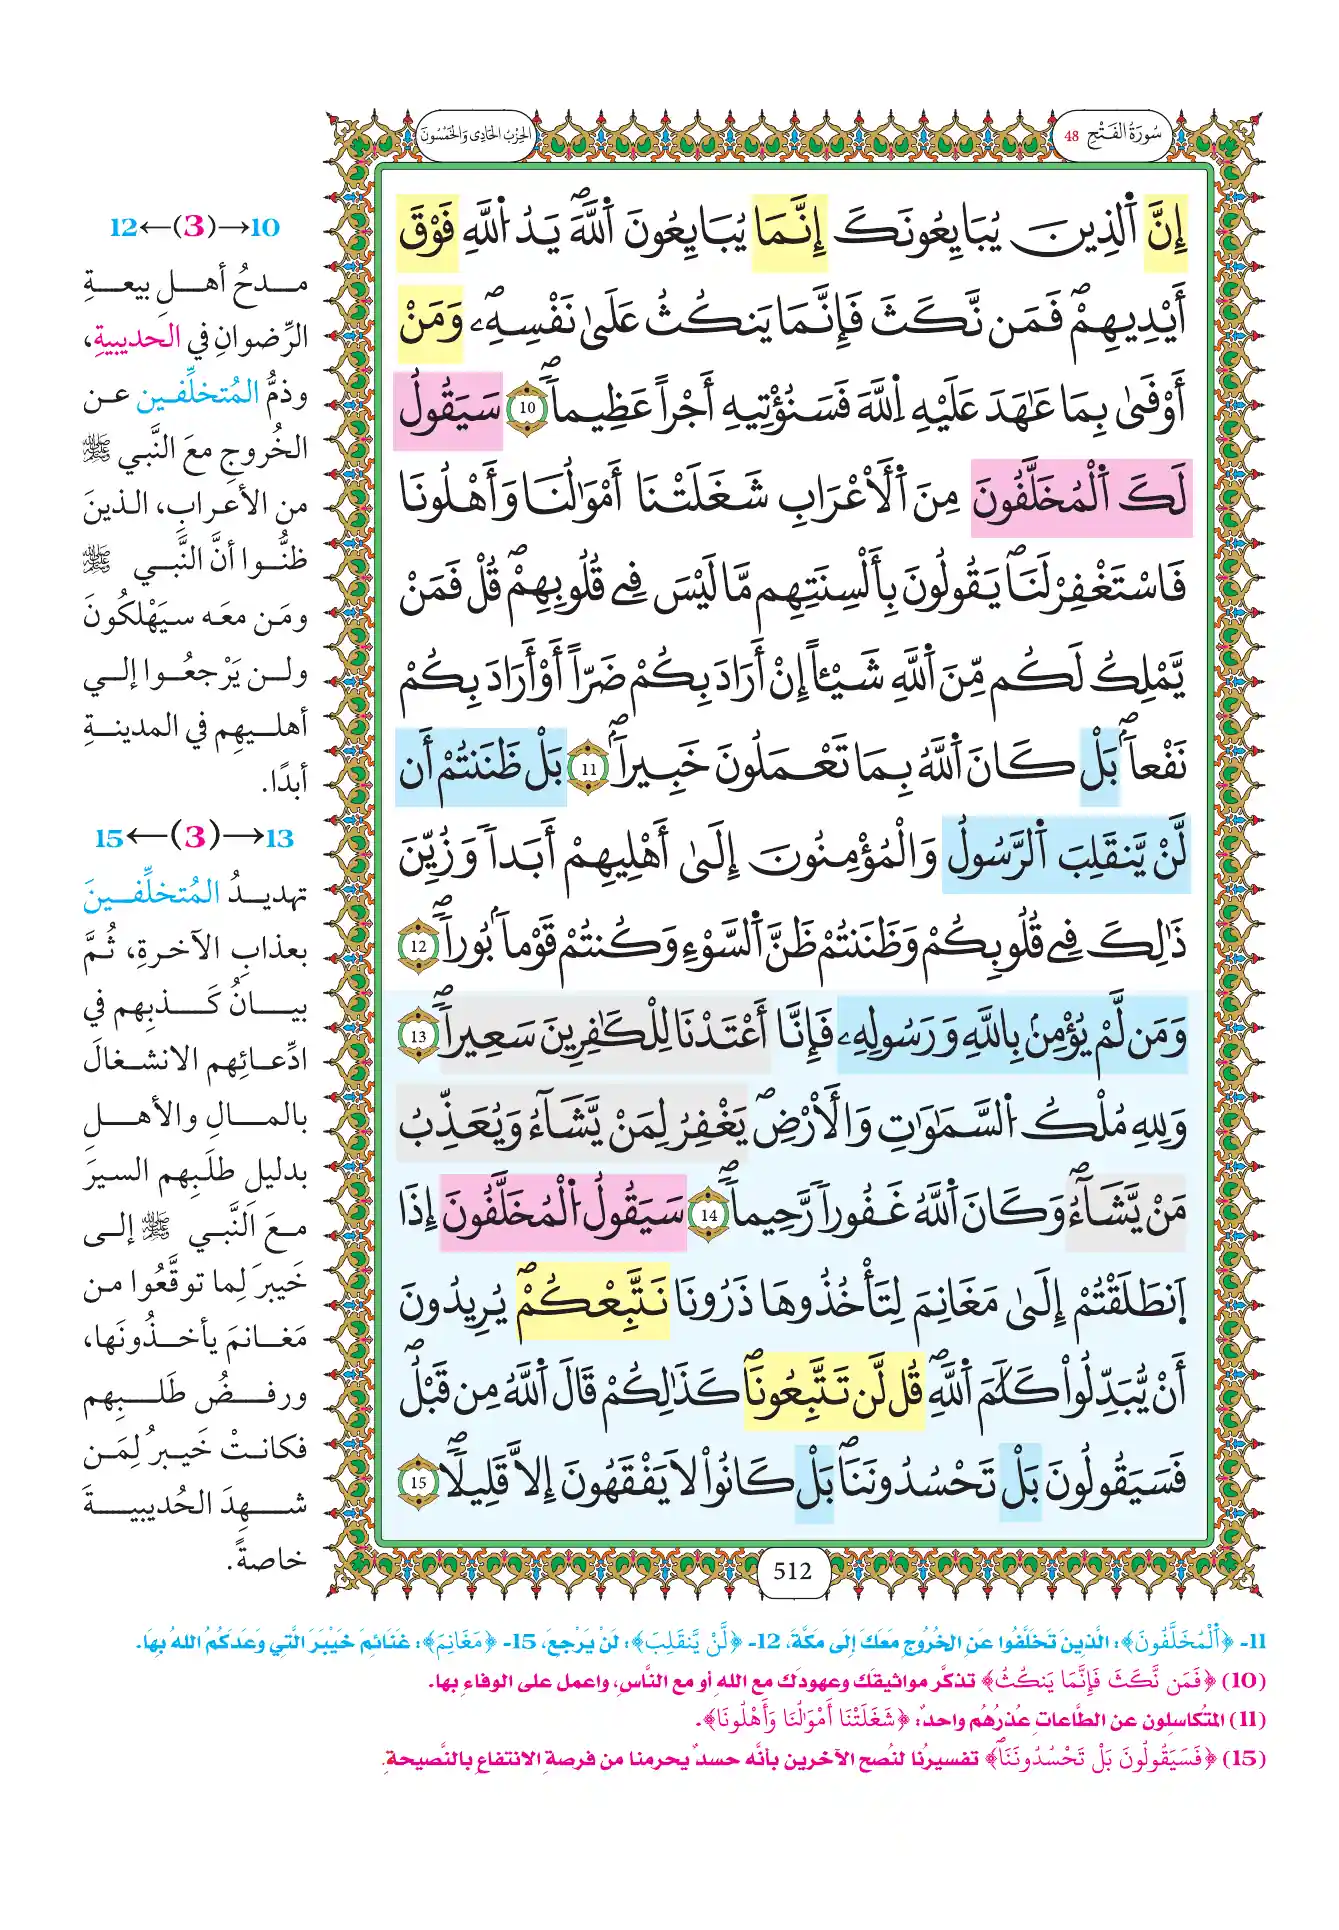 سُورَةُ الفَتْحِ 48
الحِزْبُ الحَادِي وَالخَمْسُونَ
إِنَّ اَ۬لذِينَ يُبَايِعُونَكَ إِنَّمَا يُبَايِعُونَ اَ۬للَّهَۖ يَدُ اُ۬للَّهِ فَوْقَ
أَيْدِيهِمْۖ فَمَن نَّكَثَ فَإِنَّمَا يَنكُثُ عَلَىٰ نَفْسِهِۦۖ وَمَنْ
أَوْفَىٰ بِمَا عَٰهَدَ عَلَيْهِ اِ۬للَّهَ فَسَنُؤْتِيهِ أَجْراً عَظِيماًۖ 10 سَيَقُولُ
لَكَ اَ۬لْمُخَلَّفُونَ مِنَ اَ۬لَاعْرَابِ شَغَلَتْنَا أَمْوَٰلُنَا وَأَهْلُونَا
فَاسْتَغْفِرْ لَنَاۖ يَقُولُونَ بِأَلْسِنَتِهِم مَّا لَيْسَ فِے قُلُوبِهِمْۖ قُلْ فَمَنْ
يَّمْلِكُ لَكُم مِّنَ اَ۬للَّهِ شَيْـٔاً إِنْ أَرَادَ بِكُمْ ضَرّاً أَوْ أَرَادَ بِكُمْ
نَفْعاَۢۖ بَلْ كَانَ اَ۬للَّهُ بِمَا تَعْمَلُونَ خَبِيراَۢۖ 11 بَلْ ظَنَنتُمْ أَن
لَّنْ يَّنقَلِبَ اَ۬لرَّسُولُ وَالْمُؤْمِنُونَ إِلَىٰ أَهْلِيهِمْ أَبَداً وَزُيِّنَ
ذَٰلِكَ فِے قُلُوبِكُمْ وَظَنَنتُمْ ظَنَّ اَ۬لسَّوْءِ وَكُنتُمْ قَوْماَۢ بُوراًۖ 12
وَمَن لَّمْ يُؤْمِنۢ بِاللَّهِ وَرَسُولِهِۦ فَإِنَّا أَعْتَدْنَا لِلْكَٰفِرِينَ سَعِيراًۖ 13
وَلِلهِ مُلْكُ اُ۬لسَّمَٰوَٰتِ وَالَارْضِۖ يَغْفِرُ لِمَنْ يَّشَآءُ وَيُعَذِّبُ
مَنْ يَّشَآءُۖ وَكَانَ اَ۬للَّهُ غَفُوراً رَّحِيماًۖ 14 سَيَقُولُ اُ۬لْمُخَلَّفُونَ إِذَا
اَ۪نطَلَقْتُمْ إِلَىٰ مَغَانِمَ لِتَأْخُذُوهَا ذَرُونَا نَتَّبِعْكُمْۖ يُرِيدُونَ
أَنْ يُّبَدِّلُواْ كَلَٰمَ اَ۬للَّهِۖ قُل لَّن تَتَّبِعُونَاۖ كَذَٰلِكُمْ قَالَ اَ۬للَّهُ مِن قَبْلُۖ
فَسَيَقُولُونَ بَلْ تَحْسُدُونَنَاۖ بَلْ كَانُواْ لَا يَفْقَهُونَ إِلَّا قَلِيلاًۖ 15
512
10→(3)←12
مدحُ أهلِ بيعةِ
الرِّضوانِ في الحديبيةِ،
وذمُّ المُتخلِّفين عن
الخُروجِ معَ النَّبي ﷺ
من الأعرابِ، الذينَ
ظنُّوا أنَّ النَّبي ﷺ
ومَن معَه سيَهْلكُونَ
ولن يَرْجعُوا إلى
أهليهِم في المدينةِ
أبدًا.
13→(3)←15
تهديدُ المُتخلِّفينَ
بعذابِ الآخرةِ، ثُمَّ
بيانُ كَذبِهم في
ادِّعائِهم الانشغالَ
بالمالِ والأهلِ
بدليلِ طلَبِهم السيرَ
معَ النَّبي ﷺ إلى
خَيبرَ لِما توقَّعُوا من
مَغانمَ يأخذُونَها،
ورفضُ طَلَبِهم
فكانتْ خَيبرُ لِمَن
شهدَ الحُديبيةَ
خاصةً.
11- ﴿اَ۬لْمُخَلَّفُونَ﴾: الَّذِينَ تَخَلَّفُوا عَنِ الخُرُوجِ مَعَكَ إِلَى مَكَّةَ، 12- ﴿لَّنْ يَّنقَلِبَ﴾: لَنْ يَرْجِعَ، 15- ﴿مَغَانِمَ﴾: غَنَائِمَ خَيْبَرَ الَّتِي وَعَدَكُمُ اللهُ بِهَا.
(10) ﴿فَمَن نَّكَثَ فَإِنَّمَا يَنكُثُ﴾ تذكَّر مواثيقَك وعهودَك مع اللهِ أو مع النَّاسِ، واعمل على الوفاءِ بها.
(11) المتُكاسِلون عن الطَّاعاتِ عُذرُهُم واحدٌ: ﴿شَغَلَتْنَا أَمْوَٰلُنَا وَأَهْلُونَا﴾.
(15) ﴿فَسَيَقُولُونَ بَلْ تَحْسُدُونَنَاۖ﴾ تفسيرُنا لنُصحِ الآخرين بأنَّه حسدٌ يحرمنا من فرصةِ الانتفاعِ بالنَّصيحةِ.